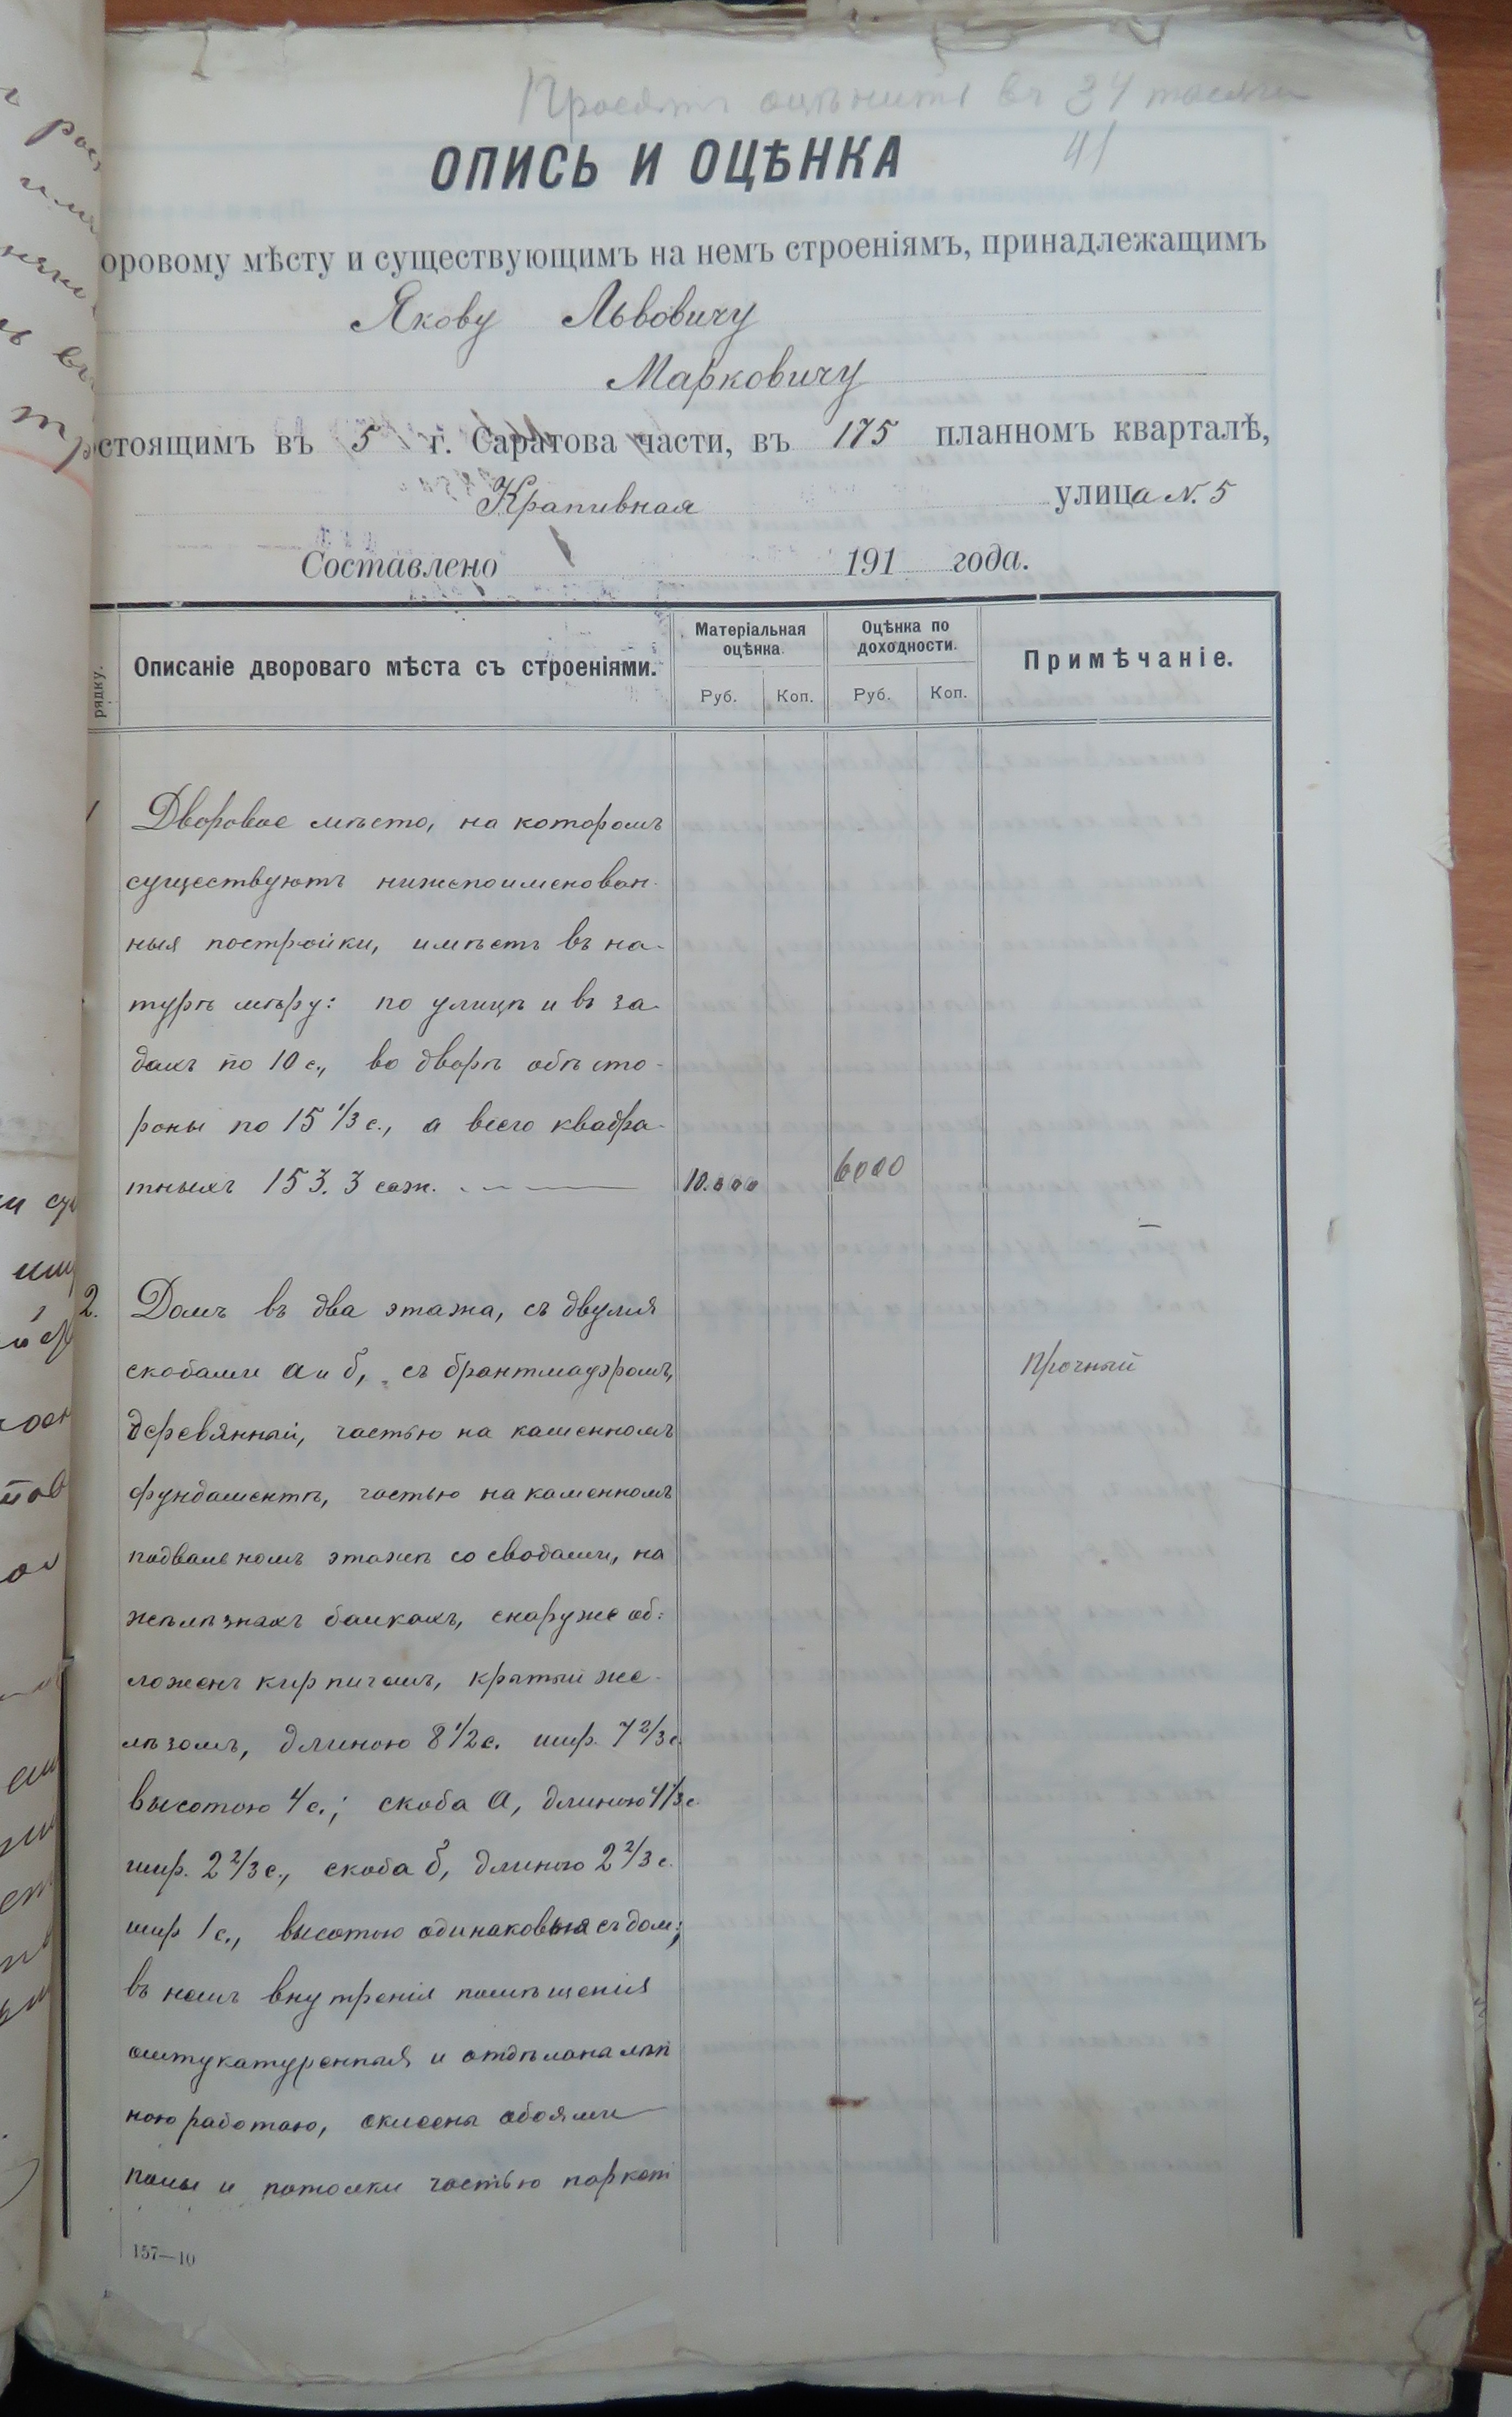 Просятъ оцѣнить въ 34 тысячи
41
ОПИСЬ И ОЦѢНКА
оровому мѣсту и существующимъ на немъ строеніямъ, принадлежащимъ
Якову Львовичу
Марковичу
стоящимъ въ 5 г. Саратова части, въ 175 планномъ кварталѣ,
Крапивная улица N. 5
Составлено 191 года.
рядку.
Описаніе дворового мѣста съ строеніями.
Матеріальная оцѣнка.
Оцѣнка по доходности.
Примѣчаніе.
Руб. Коп. Руб. Коп.
Дворовое мѣсто, на которомъ
существуютъ нижепоименован-
ныя постройки, имѣетъ въ на-
турѣ мѣру: по улицѣ и въ за-
дахъ по 10 с., во дворѣ обѣ сто-
роны по 15 1/3 с., а всего квадра-
тныхъ 153.3 саж. 10.000 6000
2. Домъ въ два этажа, съ двумя
скобами а и б, съ брантмауэромъ, Прочный
деревянный, частью на каменномъ
фундаментѣ, частью на каменномъ
подвальномъ этажѣ со сводами, на
желѣзныхъ балкахъ, снаруже об-
ложенъ кирпичемъ, крытый же-
лѣзомъ, длиною 8 1/2 с. шир. 7 2/3 с.
высотою 4 с.; скоба а, длиною 4 1/3 с.
шир. 2 2/3 с., скоба б, длиною 2 2/3 с.
шир 1 с., высотою одинаковыя съ дом:;
въ немъ внутренія помѣщенія
оштукатуренныя и отдѣлана лѣп
ною работаю, оклеены обоями
полы и потолки частью паркет
157—10